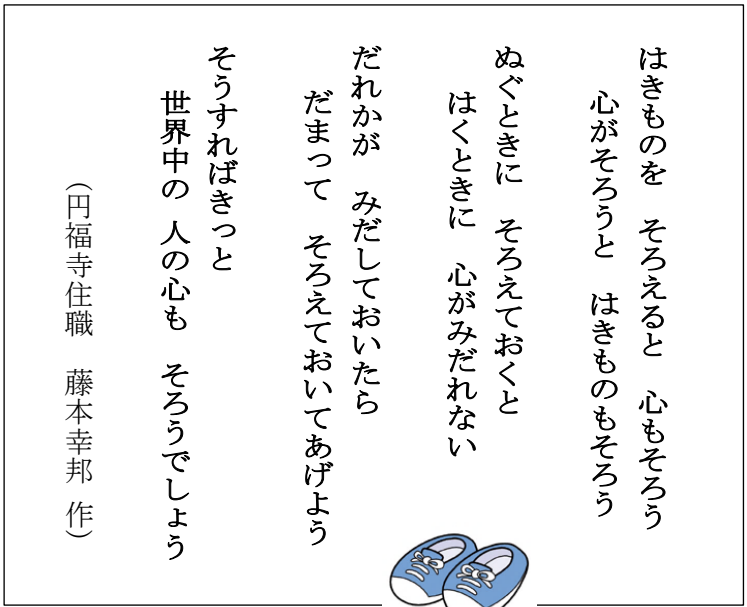 はきものを　そろえると　心もそろう
心がそろうと　はきものもそろう
ぬぐときに　そろえておくと
はくときに　心がみだれない
だれかが　みだしておいたら
だまって　そろえておいてあげよう
そうすればきっと
世界中の　人の心も　そろうでしょう
（円福寺住職　藤本幸邦　作）